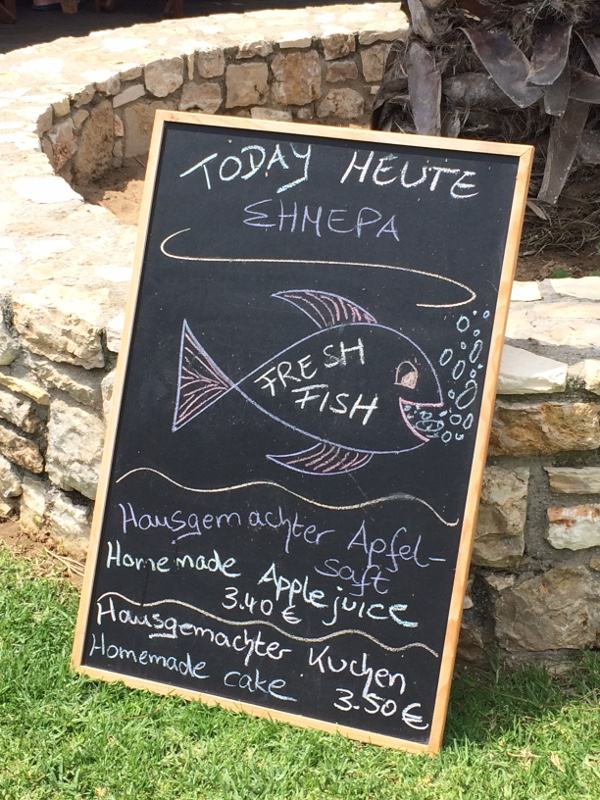 TODAY HEUTE
ΣΗΜΕΡΑ
FRESH
FISH
Hausgemachter Apfel-
saft
Homemade Apple juice
3.40 €
Hausgemachter Kuchen
Homemade cake 3.50 €